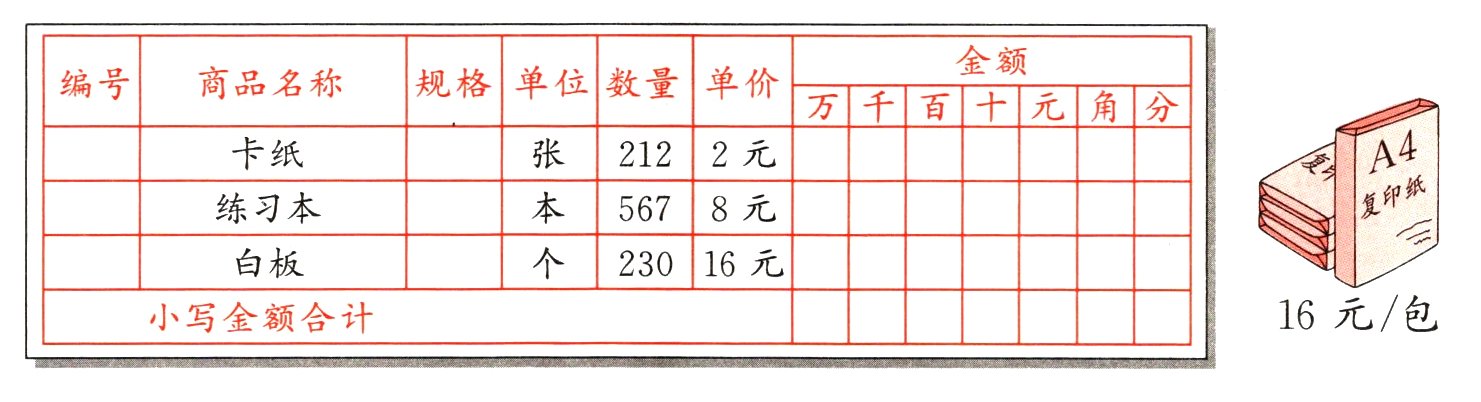 编号 商品名称 规格 单位 数量 单价 金额
万 千 百 十 元 角 分
卡纸 张 212 2 元
练习本 本 567 8 元
白板 个 230 16 元
小写金额合计
复印
A4
复印纸
16 元/包